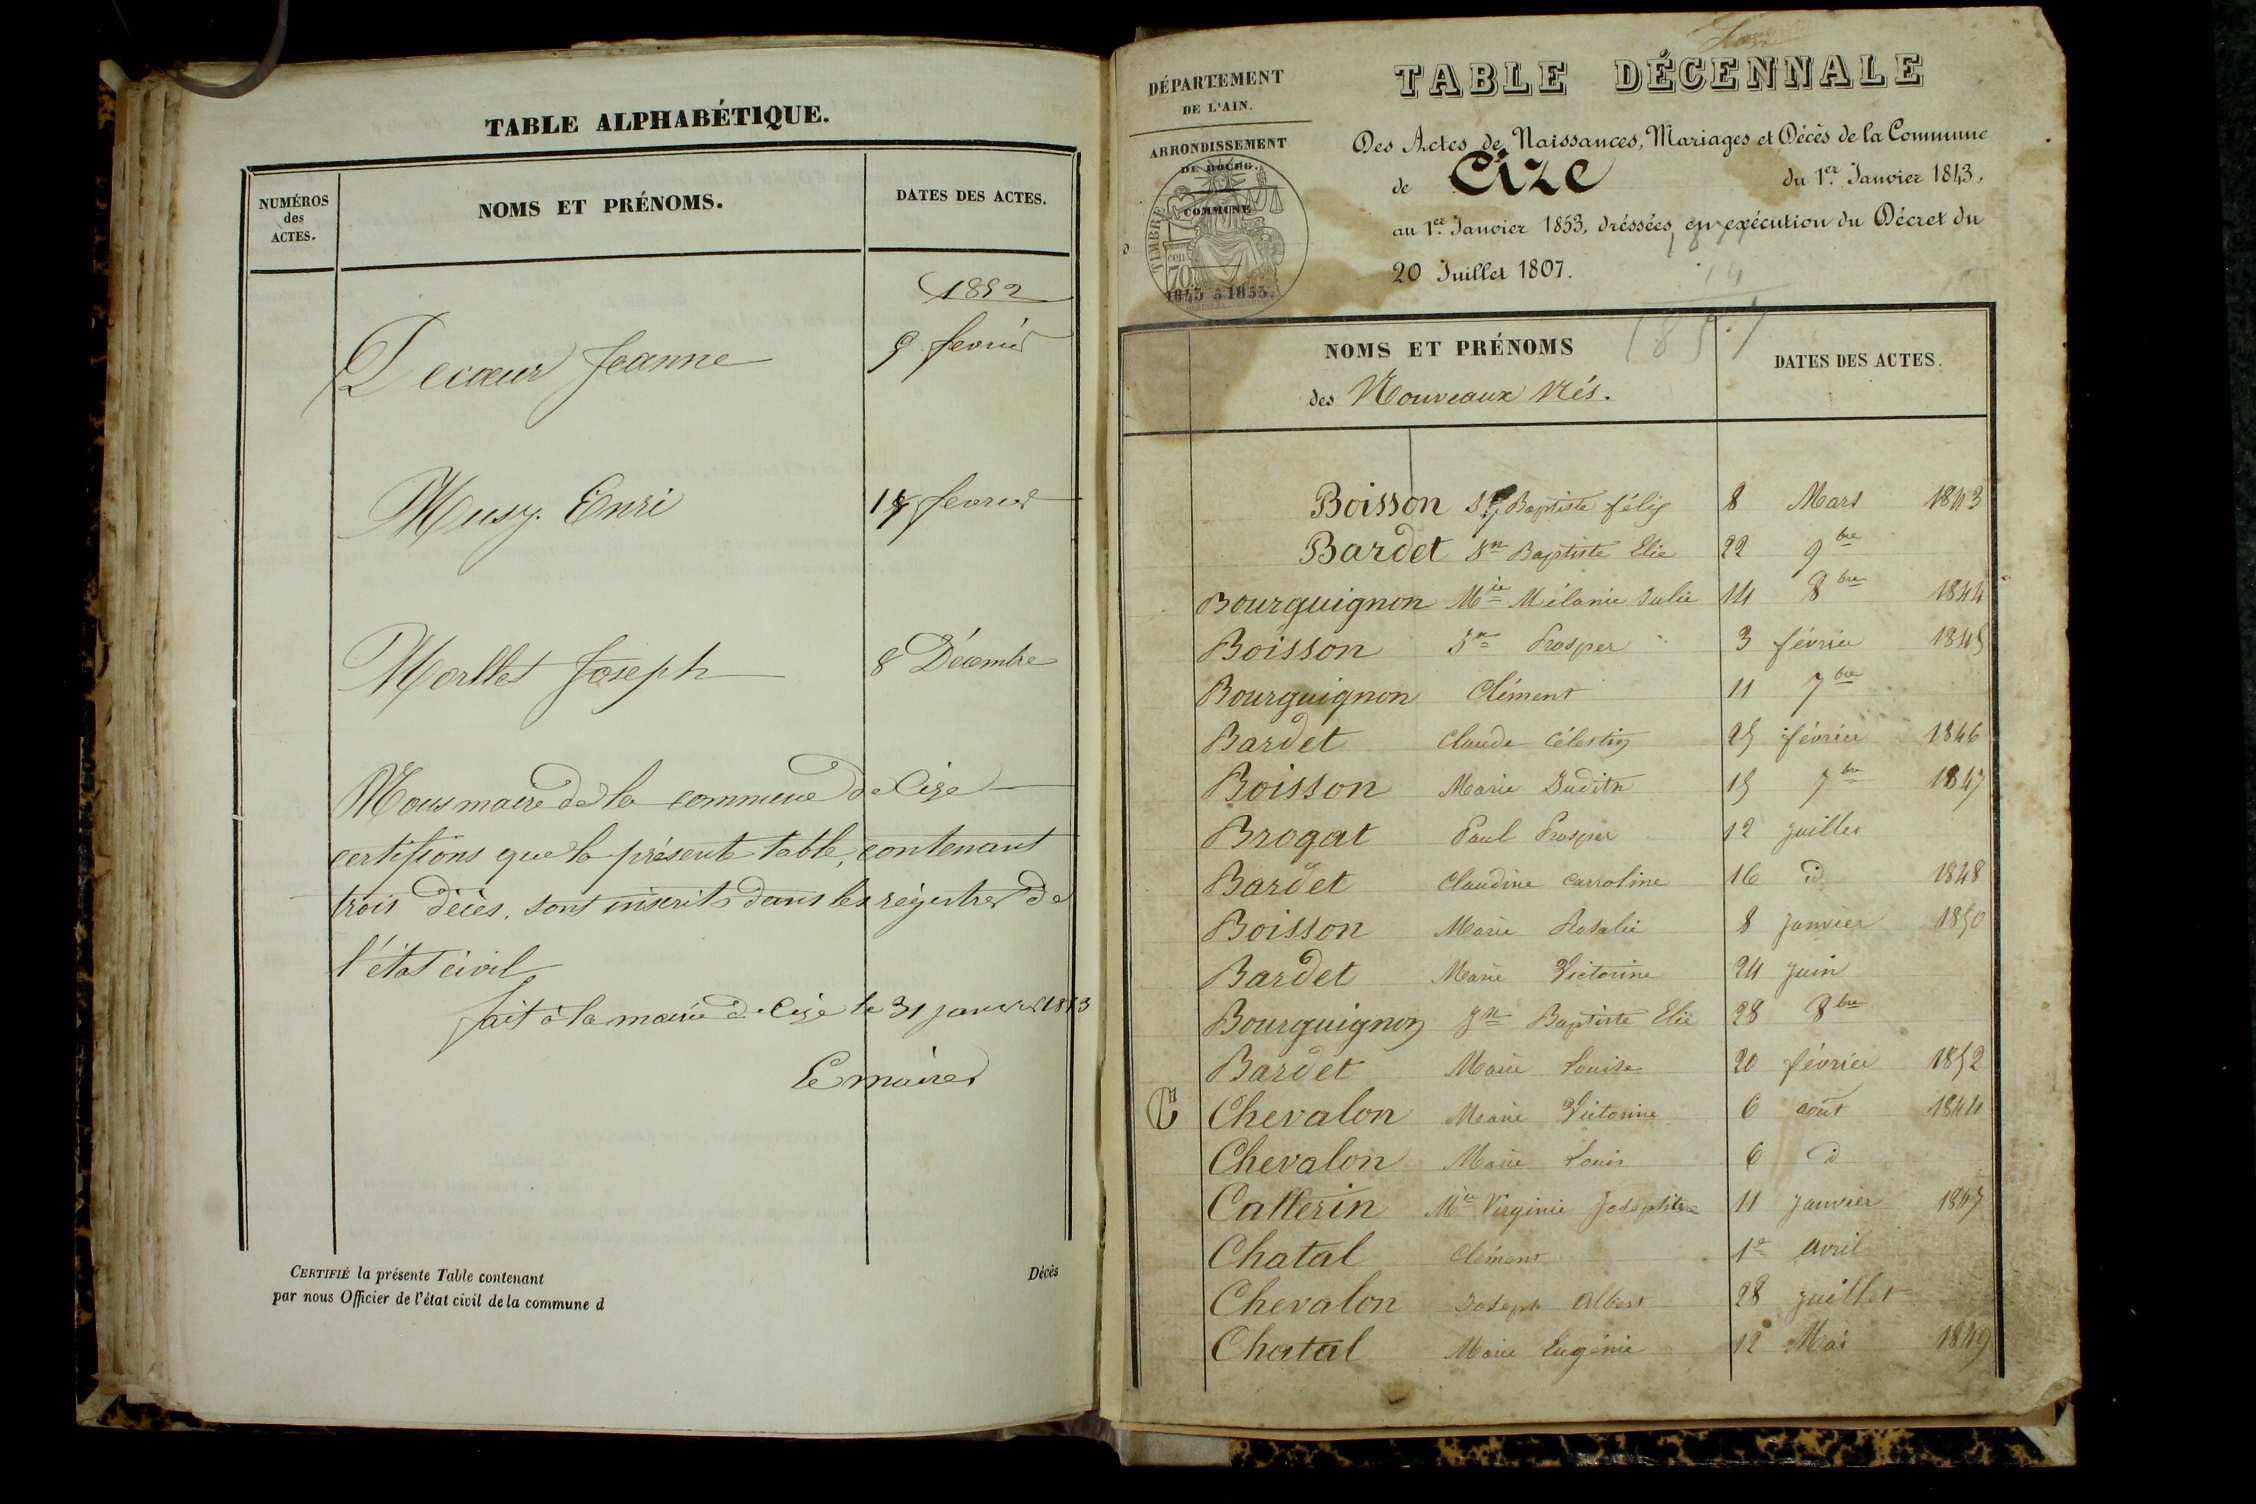 TABLE ALPHABÉTIQUE.
NUMÉROS
des
ACTES.
NOMS ET PRÉNOMS.
DATES DES ACTES.
1852
Decœur Jeanne 9 fevrier
Musy. Enri 17 fevrier
Morllet Joseph 8 Décembre
Nous maire de la commune de Cize
certifions que la présente table, contenant
trois décès. sont inscrits dans les régistres de
l'état civil
fait à la mairie de Cize le 31 janvier 1853
Le maire
CERTIFIÉ la présente Table contenant Décès
par nous Officier de l'état civil de la commune d
DÉPARTEMENT
DE L'AIN.
ARRONDISSEMENT
DE BOURG.
COMMUNE
TIMBRE
70
1843 à 1853.
TABLE DÉCENNALE
Des Actes de Naissances, Mariages et Décès de la Commune
de Cize du 1er. Janvier 1843,
au 1er. Janvier 1853, dréssées en exécution du Décret du
20 Juillet 1807.
NOMS ET PRÉNOMS
des Nouveaux Nés.
DATES DES ACTES.
Boisson Baptiste félix 8 Mars 1843
Bardet Jn Baptiste Elie 22 9bre
Bourguignon Mie Mélanie Julie 14 8bre 1844
Boisson Jn Prosper 3 février 1845
Bourguignon Clément 11 7bre
Bardet Claude Célestin 25 février 1846
Boisson Marie Judith 15 7bre 1847
Brogat Paul Prosper 12 juillet
Bardet Claudine Carroline 16 id 1848
Boisson Marie Rosalie 8 janvier 1850
Bardet Marie Victorine 24 juin
Bourguignon Jn Baptiste Elie 28 8bre
Bardet Marie Louise 20 février 1852
C Chevalon Marie Victorine 6 août 1844
Chevalon Marie Louis 6 d
Catterin Mie Virginie Joséphine 11 janvier 1847
Chatal Clément 1er avril
Chevalon Joseph Albert 28 juillet
Chatal Marie Eugénie 12 Mai 1849